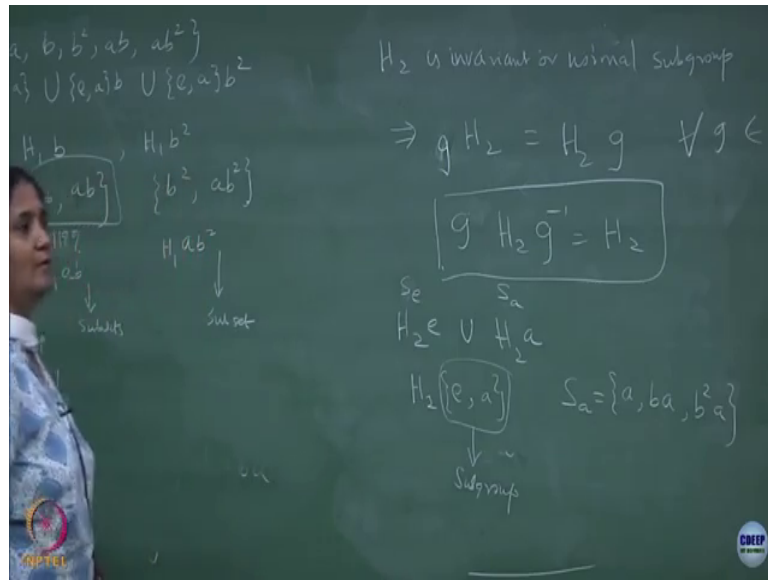 a, b, b², ab, ab²}
a} ∪ {e, a}b ∪ {e, a}b²
H₁b , H₁b²
, ab} {b², ab²}
H₁ab²
ab
Subsets Subset
H₂ is invariant or normal subgroup
⇒ g H₂ = H₂ g ∀ g ∈
g H₂ g⁻¹ = H₂
Sₑ Sₐ
H₂e ∪ H₂a
H₂{e, a} Sₐ = {a, ba, b²a}
Subgroup
NPTEL
CDEEP